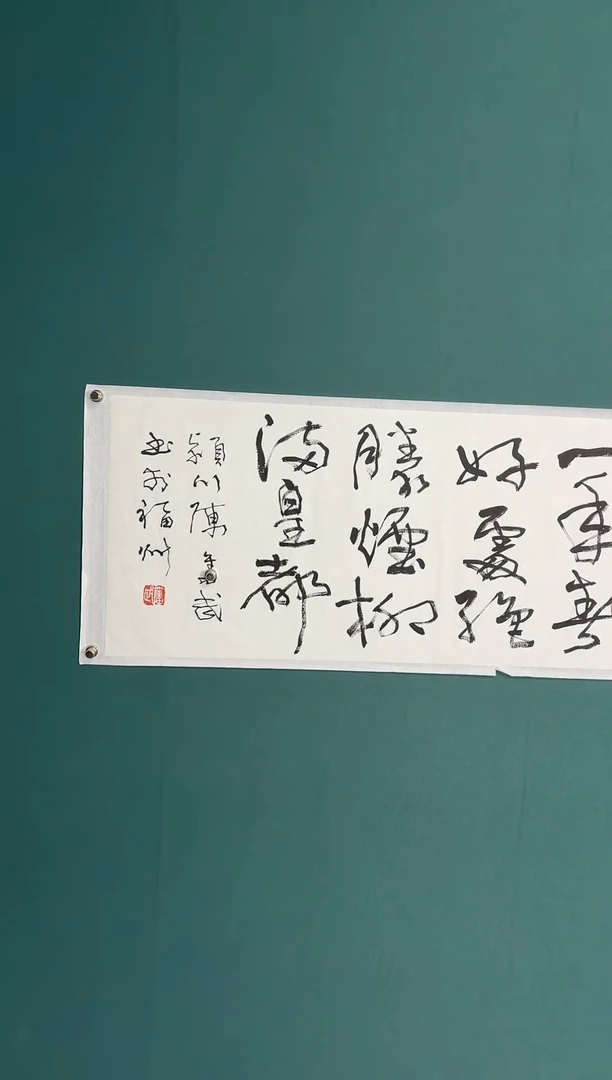 一年春
好處絕
勝煙柳
滿皇都
潁川陳 武
书於福州